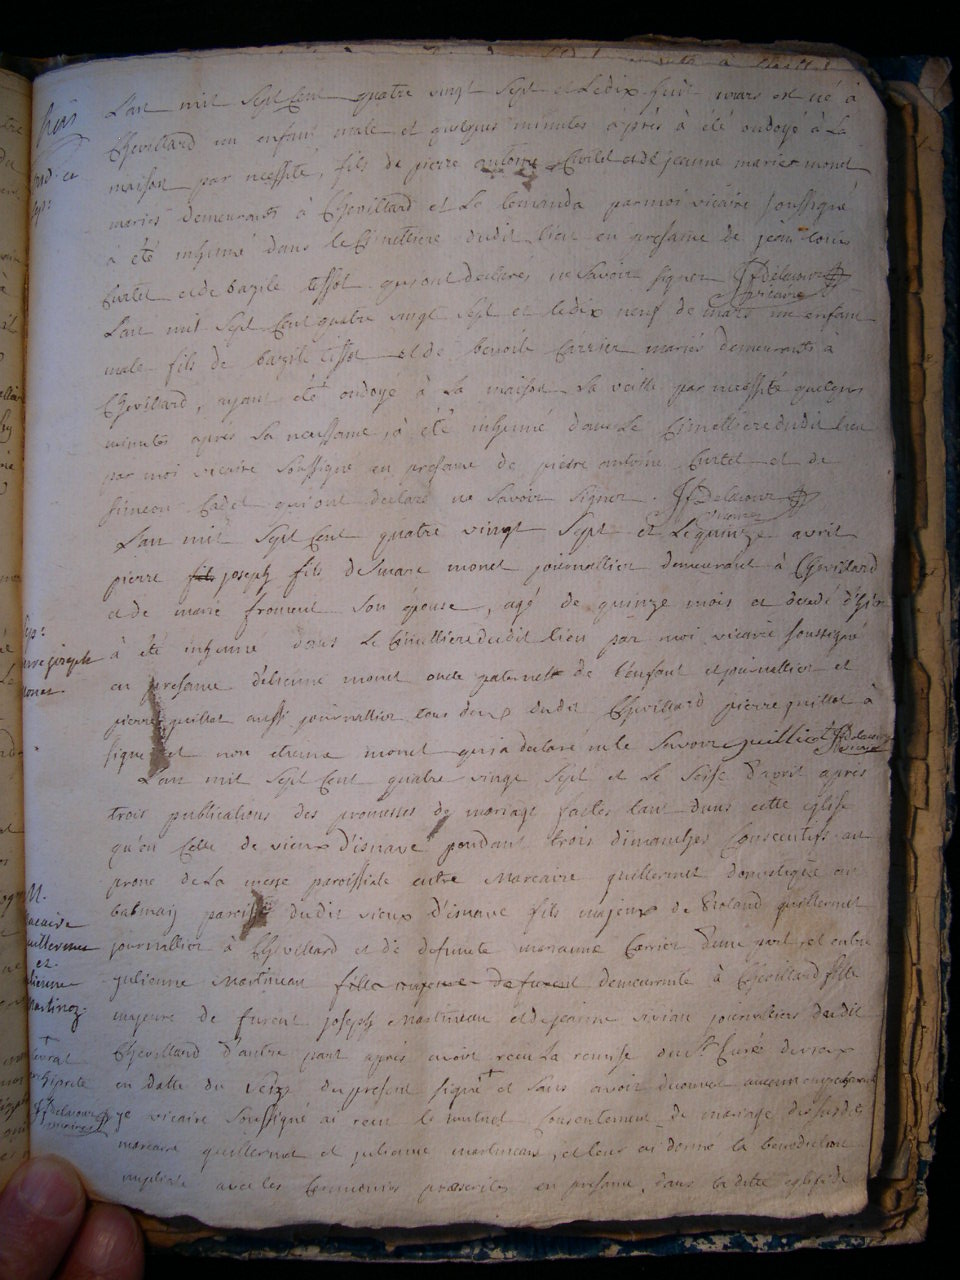 L'an mil sept Cent quatre vingt sept et Ledix-huit mars est né à
Chevillard un enfant male et quelques minutes après à été ondoyé à La
maison par necessité, fils de pierre antoine Curtet et de jeanne marie monet
mariés demeurants à Chevillard et Le Lemanda par moi vicaire soussigné
à été inhumé dans le Cimettiere dudit lieu en presance de jean louis
Curtet et de bazile tissot qui ont declarés ne Savoir signer JfDelacour
vicaire
L'an mil sept Cent quatre vingt sept et ledix neuf de mars un enfant
male fils de bazile tissot et de benoite Carrier mariés demeurants à
Chevillard, ayant été ondoyé à La maison La veille par necessité quelques
minutes après Sa naissance, à été inhumé dans Le Cimettiere dudit lieu
par moi vicaire soussigné en presance de pierre antoine Curtet et de
simeon Cadet qui ont declaré ne Savoir signer. JfDelacour
vicaire
L'an mil sept Cent quatre vingt sept et Le quinze avril
pierre joseph fils de marc monet journallier demeurant à Chevillard
et de marie froment son épouse, agé de quinze mois et decedé d'hier
à été inhumé dans Le Cimettiere dudit lieu par moi vicaire soussigné
en presance d'étienne monet oncle paternel de l'enfant et journallier et
pierre guillot aussi journallier tous deux dudit Chevillard pierre guillot à
signé et non etienne monet qui a declaré ne le Savoir guilliot JfDelacour
vicaire
L'an mil sept Cent quatre vingt sept et Le seise d'avril après
trois publications des promesses de mariage faites tant dans cette eglise
qu'en Celle de vieux d'isnave pendant trois dimanches Consecutifs au
prone de La messe paroissiale entre Marcaire guillermet domestique
paroisse dudit vieux d'isnave fils majeur de Roland guillermet
journallier à Chevillard et de defunte marianne Carrier d'une part, et entre
julienne Martineau demeurante à Chevillard fille
majeure de furent joseph Martineau et de jeanne vivian journalliers dudit
Chevillard d'autre part après avoir recu La remise du Sr Curé de vieux
en datte du du present signé + et sans avoir decouvert aucun empechement
je vicaire soussigné ai recu le mutuel Consentement de mariage des susdits
marcaire guillermet et julienne martineau, et leur ai donné la benediction
nuptiale avec les Ceremonies prescrites en presance, dans la ditte eglise de
pierre joseph
monet
M.
Macaire
guillermet
et
julienne
Martinez
+
JfDelacour
vicaire